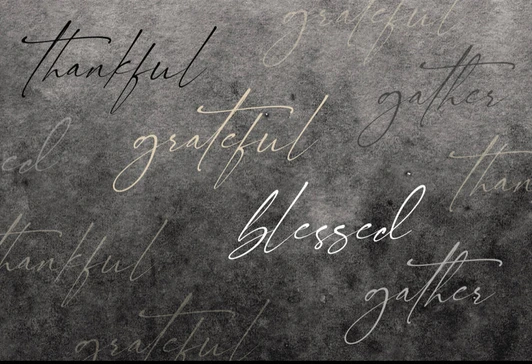 grateful
thankful
gather
grateful
ed
than
blessed
hankful
gather
grateful